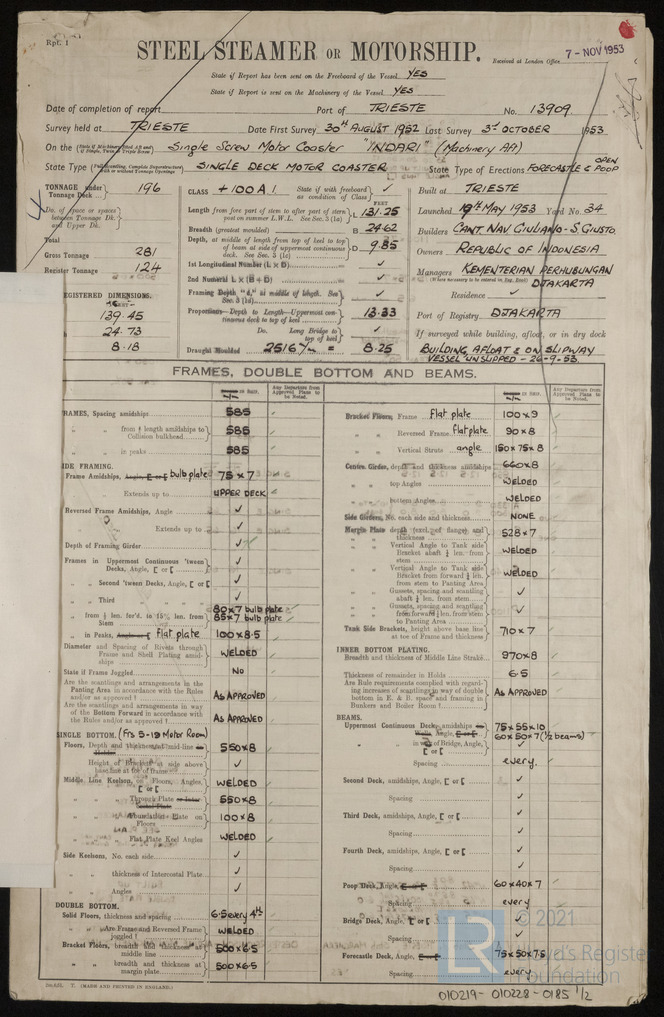 Rpt. 1
STEEL STEAMER OR MOTORSHIP.
Received at London Office 7 - NOV 1953
State if Report has been sent on the Freeboard of the Vessel YES
State if Report is sent on the Machinery of the Vessel YES
Date of completion of report Port of TRIESTE No. 13909
Survey held at TRIESTE Date First Survey 30TH AUGUST 1952 Last Survey 3rd OCTOBER 1953
On the Single Screw Motor Coaster "INDARI" (Machinery Aft)
State Type SINGLE DECK MOTOR COASTER State Type of Erections FORECASTLE & OPEN POOP
TONNAGE under Tonnage Deck 196
Do. of space or spaces between Tonnage Dk. and Upper Dk.
Total
Gross Tonnage 281
Register Tonnage 124
REGISTERED DIMENSIONS.
139.45
24.73
8.18
CLASS +100A1 State if with freeboard as condition of Class ✓
FEET
Length from fore part of stem to after part of stern post on summer L.W.L. See Sec. 3 (1a) L 131.25
Breadth (greatest moulded) B 24.62
Depth, at middle of length from top of keel to top of beam at side of uppermost continuous deck. See Sec. 3 (1c) D 9.85
1st Longitudinal Number (L x D) ✓
2nd Numeral L x (B + D) ✓
Framing Depth "d," at middle of length. See Sec. 3 (1d) ✓
Proportions—Depth to Length—Uppermost continuous deck to top of keel 13.33
Do. Long Bridge to top of keel ✓
Draught Moulded 2516 m/m = 8.25
Built at TRIESTE
Launched 19th MAY 1953 Yard No. 34
Builders CANT. NAV GIULIANO - S GIUSTO
Owners REPUBLIC OF INDONESIA
Managers KEMENTERIAN PERHUBUNGAN
DJAKARTA
Residence ✓
Port of Registry DJAKARTA
If surveyed while building, afloat, or in dry dock
BUILDING, AFLOAT & ON SLIPWAY
VESSEL UNSLIPPED - 26-9-53.
FRAMES, DOUBLE BOTTOM AND BEAMS.
Any Departure from Approved Plans to be Noted.
FRAMES, Spacing amidships 585
" " from ⅓ length amidships to Collision bulkhead 585
" " in peaks 585
SIDE FRAMING.
Frame Amidships, Angle, [ or [ bulb plate 75 x 7
" " Extends up to UPPER DECK
Reversed Frame Amidships, Angle ✓
" " Extends up to ✓
Depth of Framing Girder ✓
Frames in Uppermost Continuous 'tween Decks, Angle, [ or [ ✓
" " Second 'tween Decks, Angle, [ or [ ✓
" " Third " " ✓
" " from ⅕ len. for'd. to 15% len. from Stem 80 x 7 bulb plate
85 x 7 bulb plate
" " in Peaks, Angle or [ flat plate 100 x 8.5
Diameter and Spacing of Rivets through Frame and Shell Plating amidships WELDED
State if Frame Joggled No
Are the scantlings and arrangements in the Panting Area in accordance with the Rules and/or as approved? AS APPROVED
Are the scantlings and arrangements in way of the Bottom Forward in accordance with the Rules and/or as approved? AS APPROVED
SINGLE BOTTOM. (Frs 5-19 Motor Room)
Floors, Depth and thickness at mid-line 550 x 8
Height of Brackets at side above base line at toe of frame ✓
Middle Line Keelson, on Floors, Angles, [ or [ WELDED
" " Through Plate or Intercostal Plate 550 x 8
" " Foundation Plate on Floors 100 x 8
" " Flat Plate Keel Angles WELDED
Side Keelsons, No. each side ✓
" " thickness of Intercostal Plate ✓
" " Angles ✓
DOUBLE BOTTOM.
Solid Floors, thickness and spacing 6.5 every 4th
" " Are Frame and Reversed Frame joggled? WELDED
Bracket Floors, breadth and thickness at middle line 500 x 6.5
" " breadth and thickness at margin plate 500 x 6.5
Any Departure from Approved Plans to be Noted.
Bracket Floors, Frame flat plate 100 x 9
" " Reversed Frame flat plate 90 x 8
" " Vertical Struts angle 150 x 75 x 8
Centre Girder, depth and thickness amidships 660 x 8
" " top Angles WELDED
" " bottom Angles WELDED
Side Girders, No. each side and thickness NONE
Margin Plate depth (excl. of flange) and thickness 528 x 7
" " Vertical Angle to Tank side Bracket abaft ¼ len. from stem WELDED
" " Vertical Angle to Tank side Bracket from forward ¼ len. from stem to Panting Area WELDED
" " Gussets, spacing and scantling abaft ¼ len. from stem ✓
" " Gussets, spacing and scantling from forward ¼ len. from stem to Panting Area ✓
Tank Side Brackets, height above base line at toe of Frame and thickness 710 x 7
INNER BOTTOM PLATING.
Breadth and thickness of Middle Line Strake 970 x 8
Thickness of remainder in Holds 6.5
Are Rule requirements complied with regarding increases of scantlings in way of double bottom in E. & B. space and framing in Bunkers and Boiler Room? AS APPROVED
BEAMS.
Uppermost Continuous Deck, amidships 75 x 55 x 10
60 x 50 x 7 (½ beams)
" " in way of Bridge, Angle, [ or [ ✓
Spacing every.
Second Deck, amidships, Angle, [ or [ ✓
Spacing ✓
Third Deck, amidships, Angle, [ or [ ✓
Spacing ✓
Fourth Deck, amidships, Angle, [ or [ ✓
Spacing ✓
Poop Deck, Angle, [ or [ 60 x 40 x 7
Spacing every
Bridge Deck, Angle, [ or [ ✓
Spacing ✓
Forecastle Deck, Angle, [ or [ 75 x 50 x 7.5
Spacing every
(MADE AND PRINTED IN ENGLAND.)
© 2021
LR
Lloyd's Register
Foundation
010219- 010228-0185 1/2